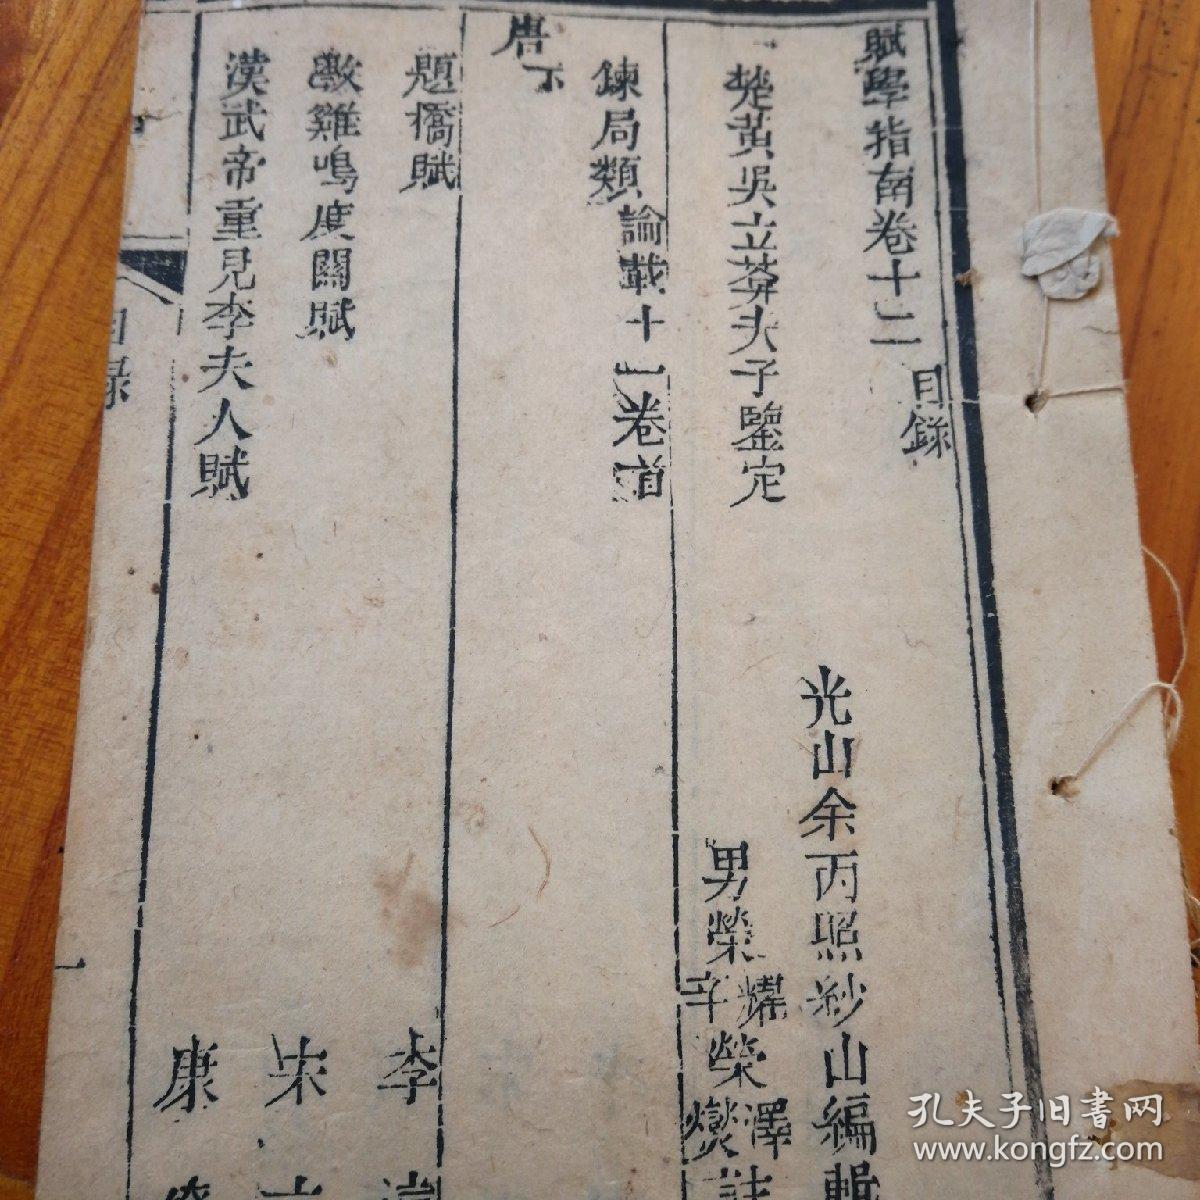 賦學指南卷十二
目錄
光山余丙照紗山編輯
楚黃吳立莽夫子鑒定
男榮耀榮澤
辛燮註
鍊局類
論載十一卷首
唐下
題橋賦
李
效雞鳴度關賦
宋
漢武帝重見李夫人賦
康
目録
一
孔夫子旧书网
www.kongfz.com